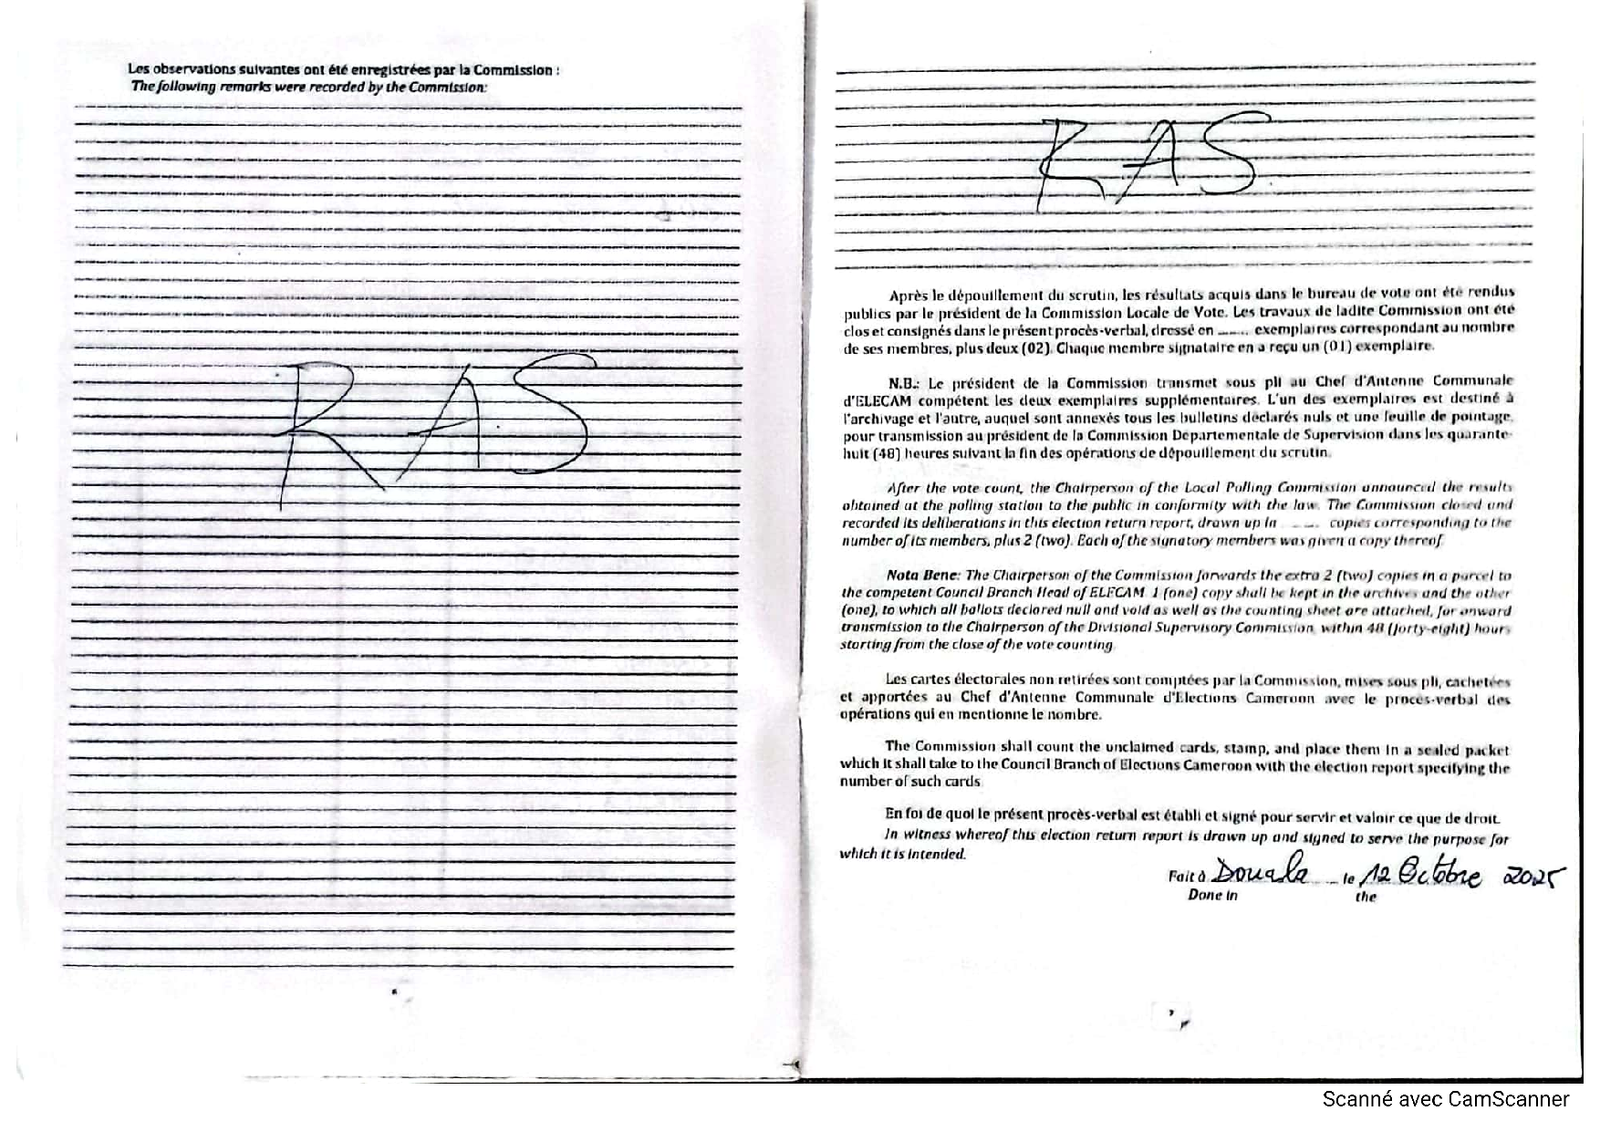 Les observations suivantes ont été enregistrées par la Commission :
The following remarks were recorded by the Commission:
RAS
RAS
Après le dépouillement du scrutin, les résultats acquis dans le bureau de vote ont été rendus
publics par le président de la Commission Locale de Vote. Les travaux de ladite Commission ont été
clos et consignés dans le présent procès-verbal, dressé en ........ exemplaires correspondant au nombre
de ses membres, plus deux (02). Chaque membre signataire en a reçu un (01) exemplaire.
N.B.: Le président de la Commission transmet sous pli au Chef d'Antenne Communale
d'ELECAM compétent les deux exemplaires supplémentaires. L'un des exemplaires est destiné à
l'archivage et l'autre, auquel sont annexés tous les bulletins déclarés nuls et une feuille de pointage,
pour transmission au président de la Commission Départementale de Supervision dans les quarante-
huit (48) heures suivant la fin des opérations de dépouillement du scrutin.
After the vote count, the Chairperson of the Local Polling Commission announced the results
obtained at the polling station to the public in conformity with the law. The Commission closed and
recorded its deliberations in this election return report, drawn up in ........ copies corresponding to the
number of its members, plus 2 (two). Each of the signatory members was given a copy thereof.
Nota Bene: The Chairperson of the Commission forwards the extra 2 (two) copies in a parcel to
the competent Council Branch Head of ELECAM. 1 (one) copy shall be kept in the archives and the other
(one), to which all ballots declared null and void as well as the counting sheet are attached, for onward
transmission to the Chairperson of the Divisional Supervisory Commission, within 48 (forty-eight) hours
starting from the close of the vote counting.
Les cartes électorales non retirées sont comptées par la Commission, mises sous pli, cachetées
et apportées au Chef d'Antenne Communale d'Elections Cameroon avec le procès-verbal des
opérations qui en mentionne le nombre.
The Commission shall count the unclaimed cards, stamp, and place them in a sealed packet
which it shall take to the Council Branch of Elections Cameroon with the election report specifying the
number of such cards.
En foi de quoi le présent procès-verbal est établi et signé pour servir et valoir ce que de droit.
In witness whereof this election return report is drawn up and signed to serve the purpose for
which it is intended.
Fait à Douala le 12 Octobre 2025
Done in the
Scanné avec CamScanner